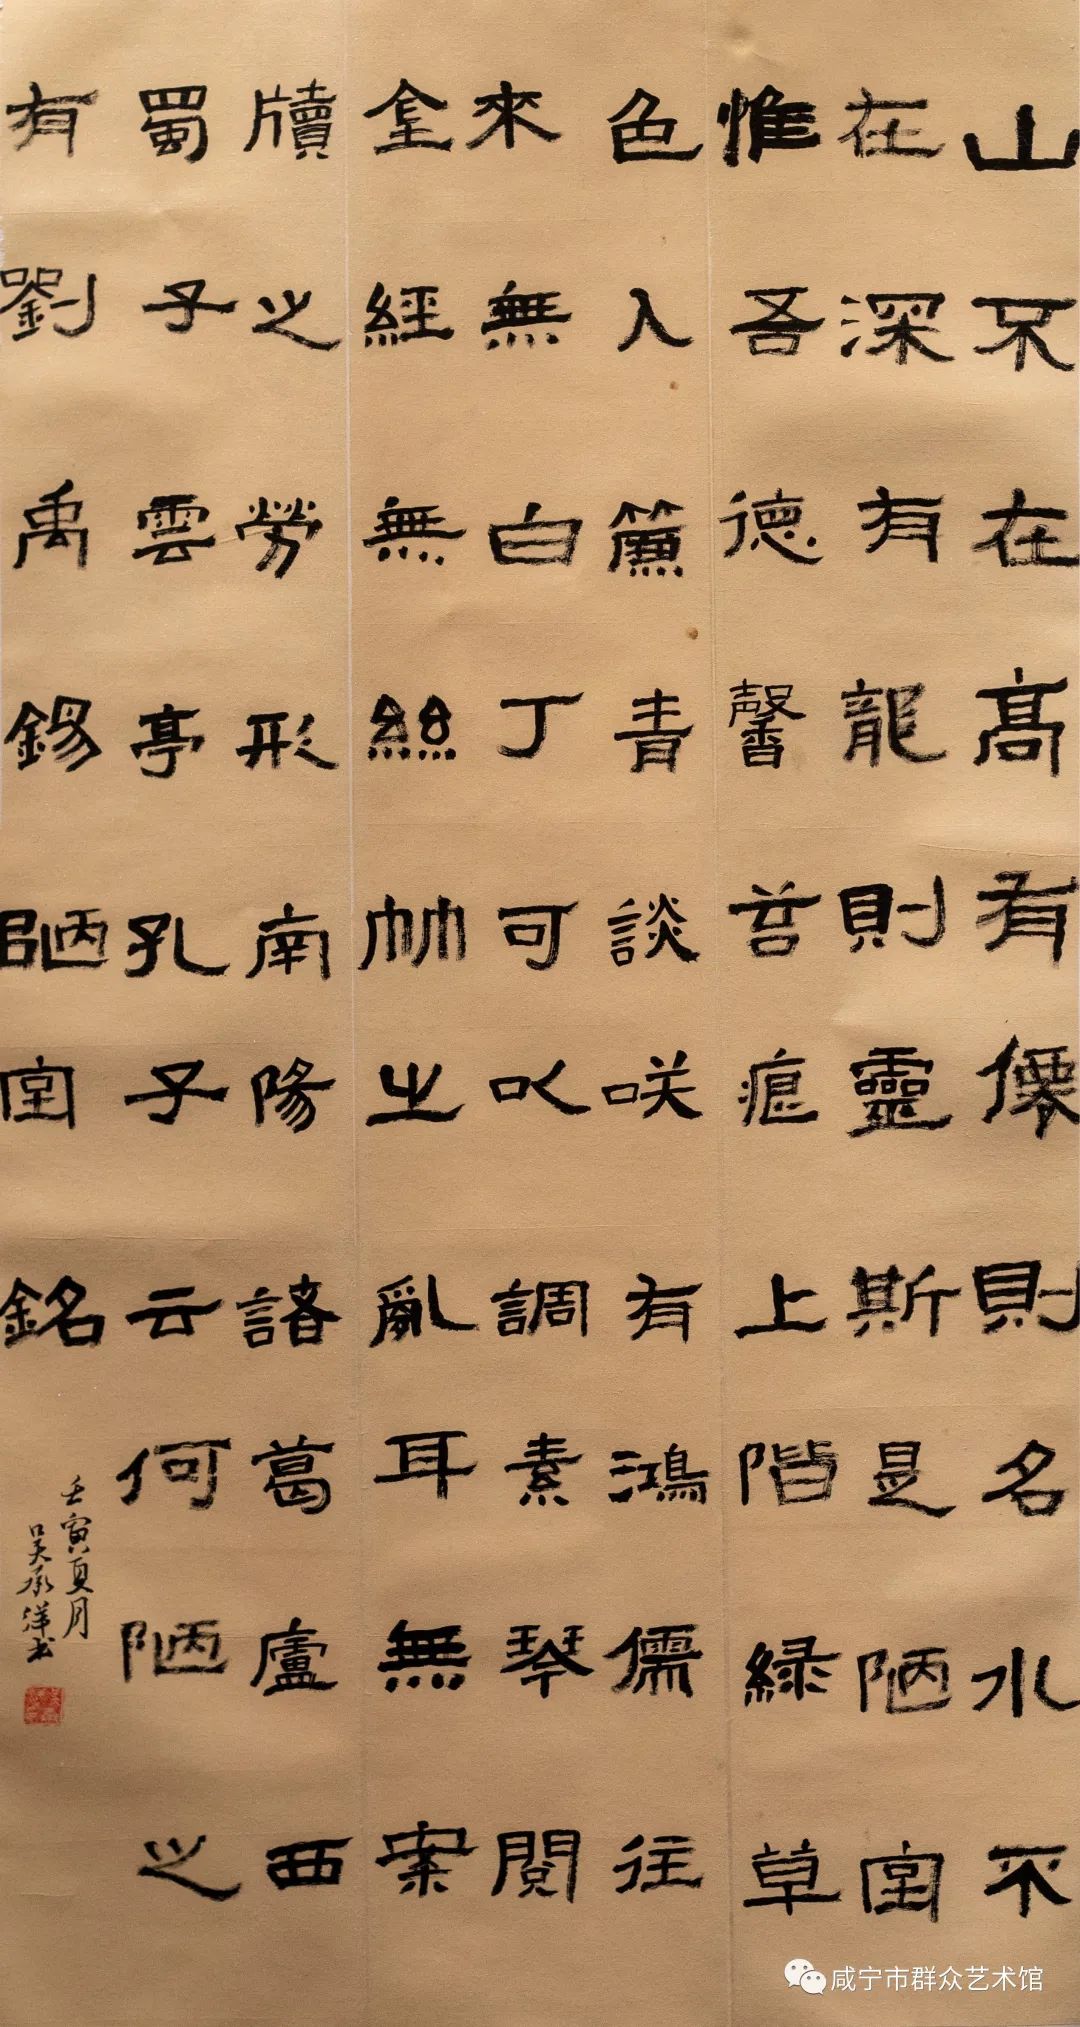 山不在高有僊則名水不
在深有龍則靈斯是陋室
惟吾德馨苔痕上階緑草
色入簾青談咲有鴻儒往
來無白丁可以調素琴閱
金經無絲竹之亂耳無案
牘之勞形南陽諸葛廬西
蜀子雲亭孔子云何陋之
有劉禹錫陋室銘
壬寅夏月
吴承洋书
咸宁市群众艺术馆